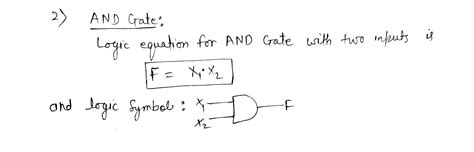 2) AND Gate:
Logic equation for AND Gate with two inputs is
F = X₁·X₂
and logic Symbol : X₁ F
X₂